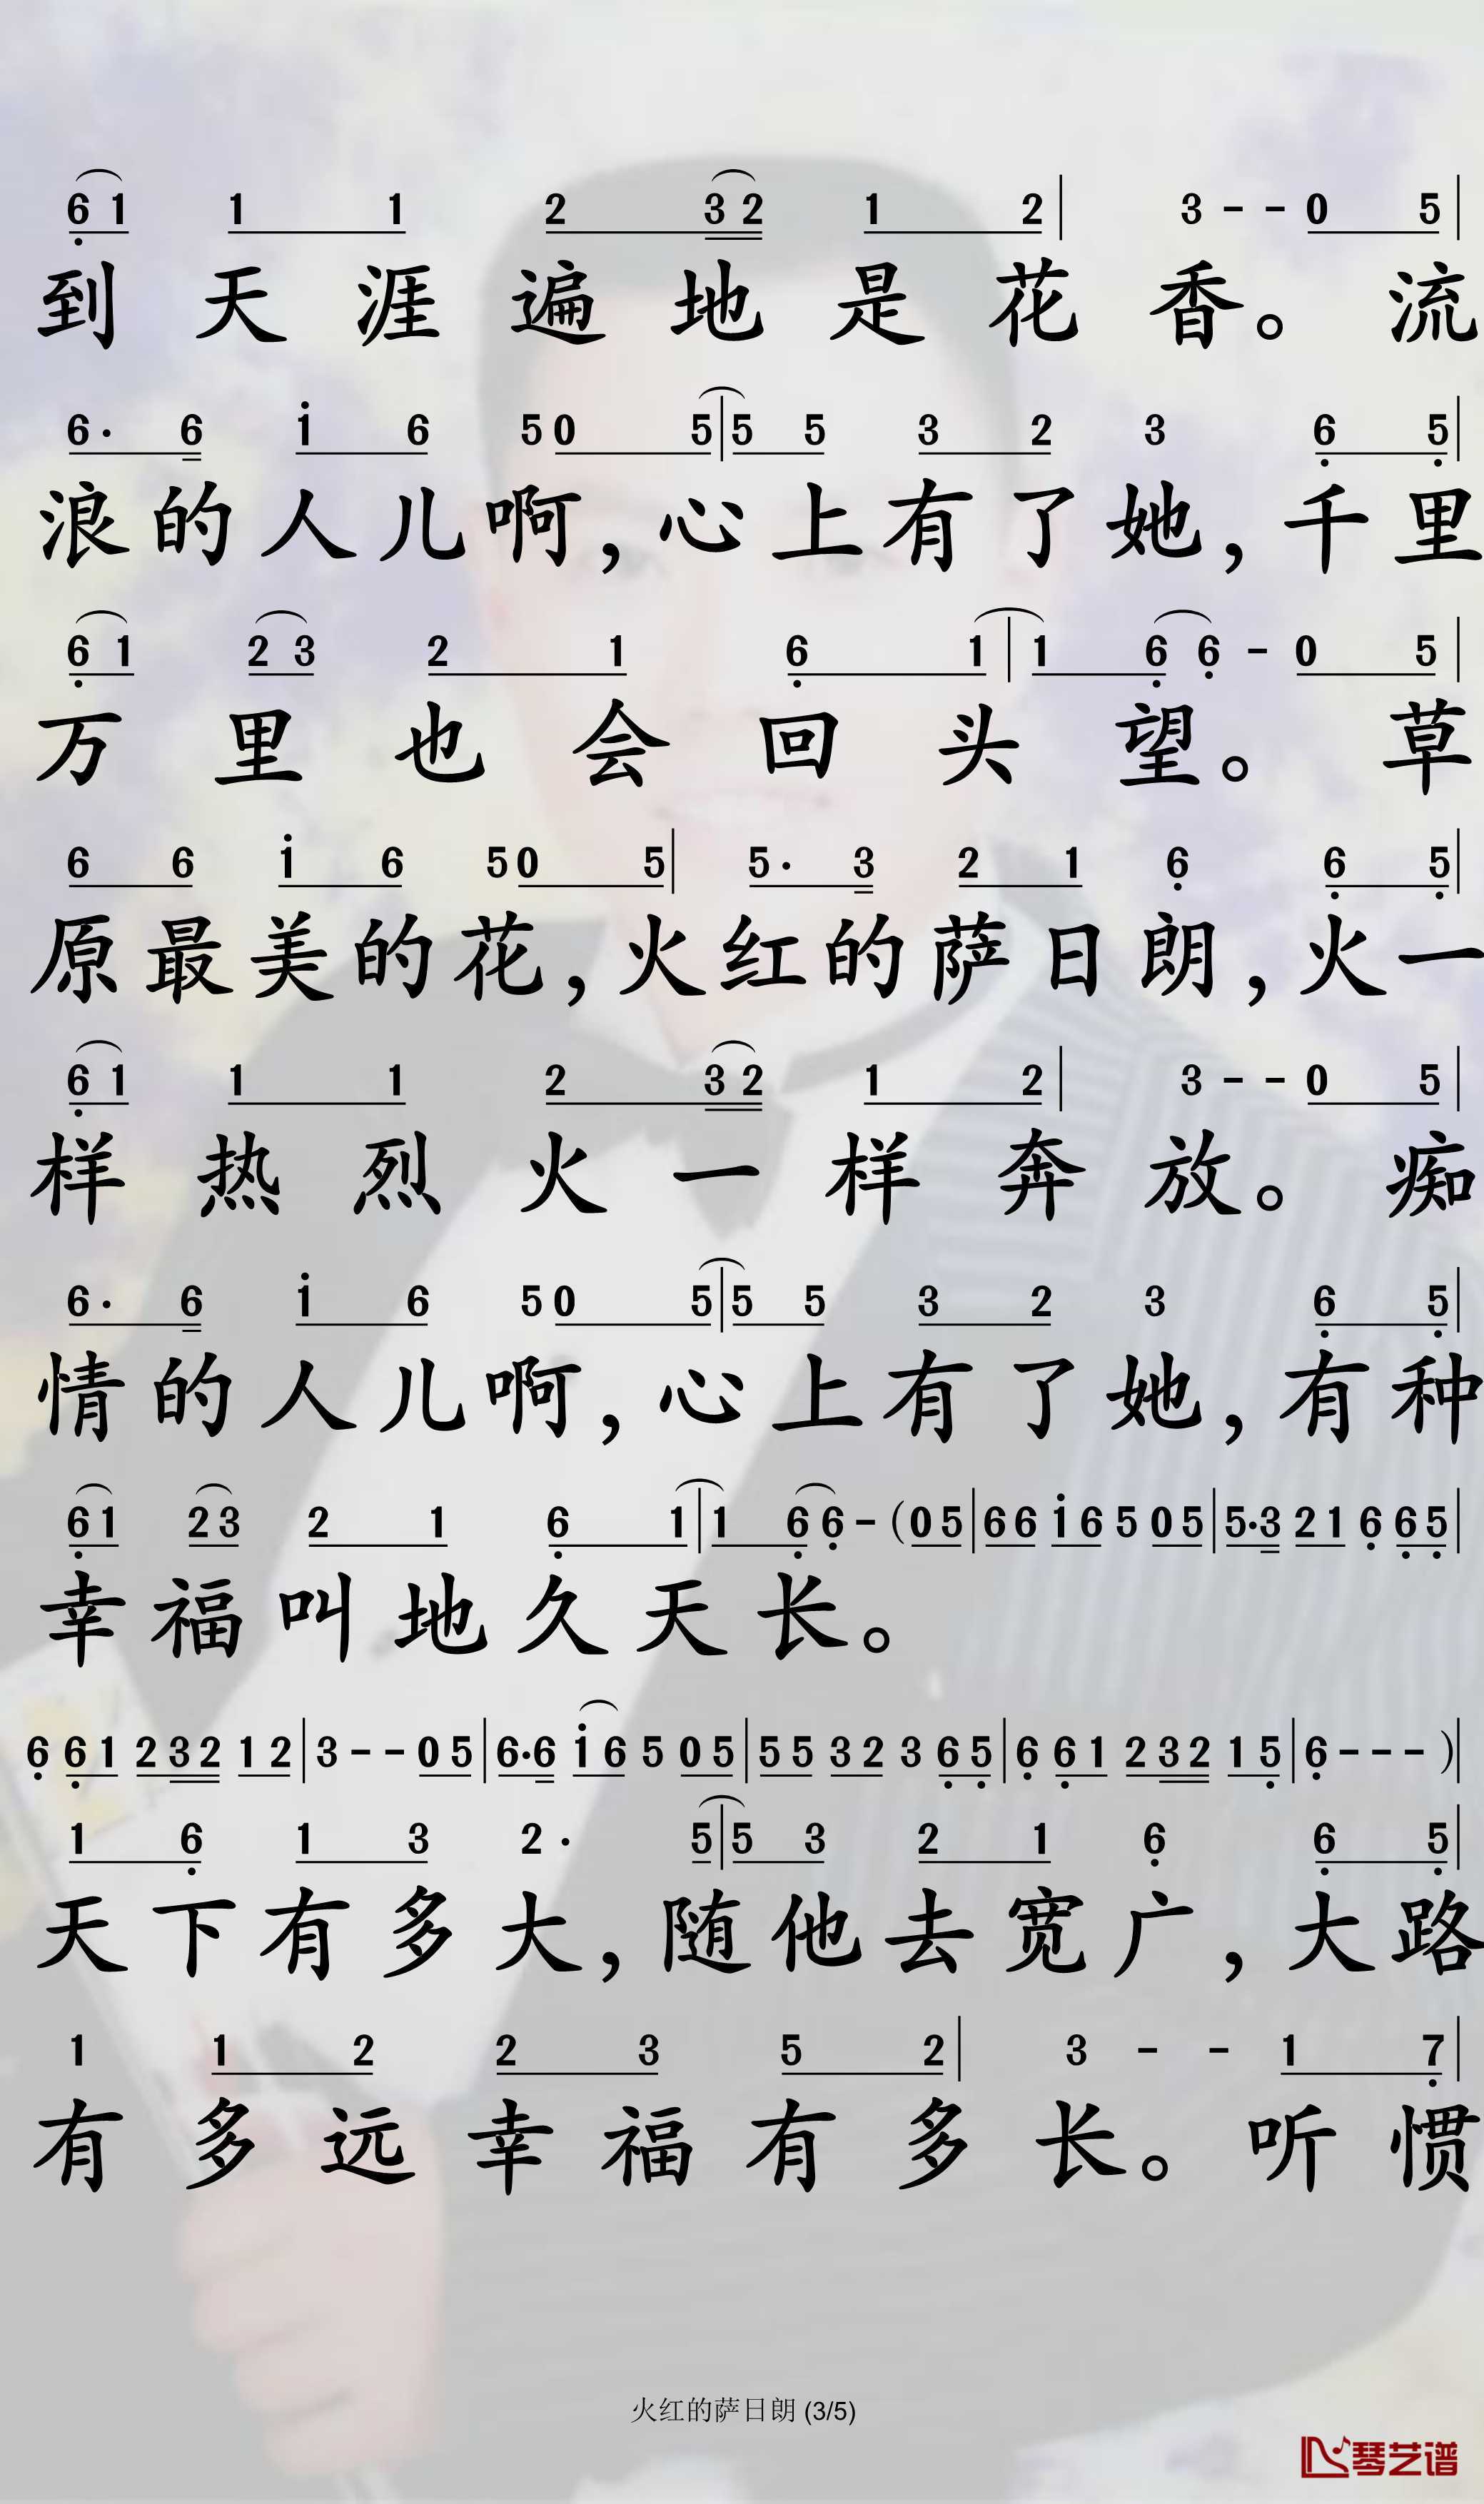 6 1 1 1 2 3 2 1 2 | 3 - - 0 5 |
到天涯遍地是花香。流
6· 6 i 6 5 0 5 | 5 5 3 2 3 6 5 |
浪的人儿啊,心上有了她,千里
6 1 2 3 2 1 6 1 | 1 6 6 - 0 5 |
万里也会回头望。草
6 6 i 6 5 0 5 | 5· 3 2 1 6 6 5 |
原最美的花,火红的萨日朗,火一
6 1 1 1 2 3 2 1 2 | 3 - - 0 5 |
样热烈火一样奔放。痴
6· 6 i 6 5 0 5 | 5 5 3 2 3 6 5 |
情的人儿啊,心上有了她,有种
6 1 2 3 2 1 6 1 | 1 6 6 - (0 5 | 6 6 i 6 5 0 5 | 5·3 2 1 6 6 5 |
幸福叫地久天长。
6 6 1 2 3 2 1 2 | 3 - - 0 5 | 6·6 i 6 5 0 5 | 5 5 3 2 3 6 5 | 6 6 1 2 3 2 1 5 | 6 - - - ) |
1 6 1 3 2· 5 | 5 3 2 1 6 6 5 |
天下有多大,随他去宽广,大路
1 1 2 2 3 5 2 | 3 - - 1 7 |
有多远幸福有多长。听惯
火红的萨日朗 (3/5)
琴艺谱